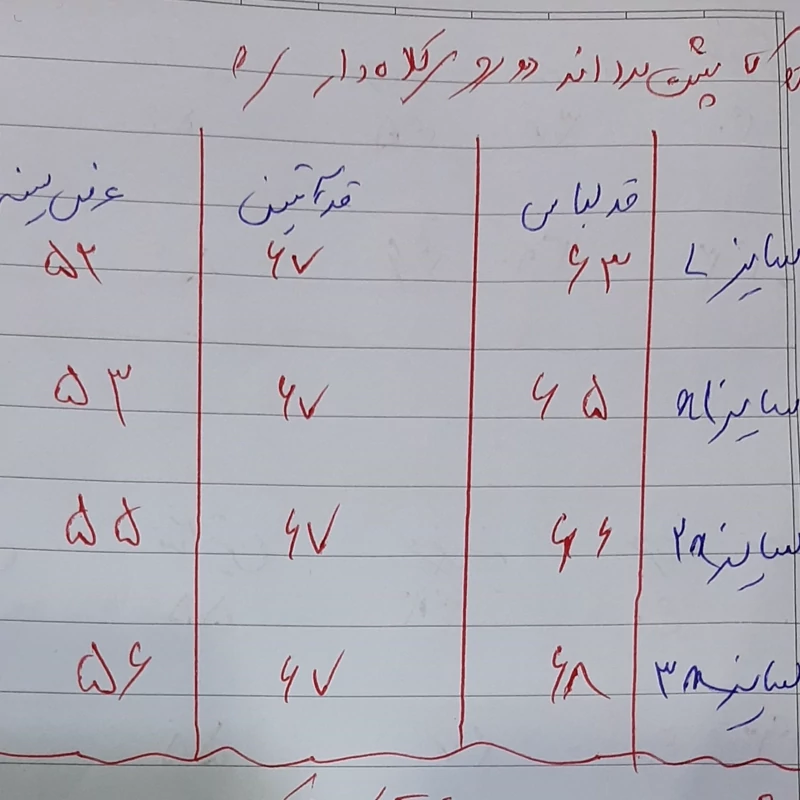 پشت مردانه دورو کلاه‌دار
قد لباس قد آستین عرض سینه
سایز L ۶۳ ۶۷ ۵۲
سایز ۱x ۶۵ ۶۷ ۵۳
سایز ۲x ۶۶ ۶۷ ۵۵
سایز ۳x ۶۸ ۶۷ ۵۶